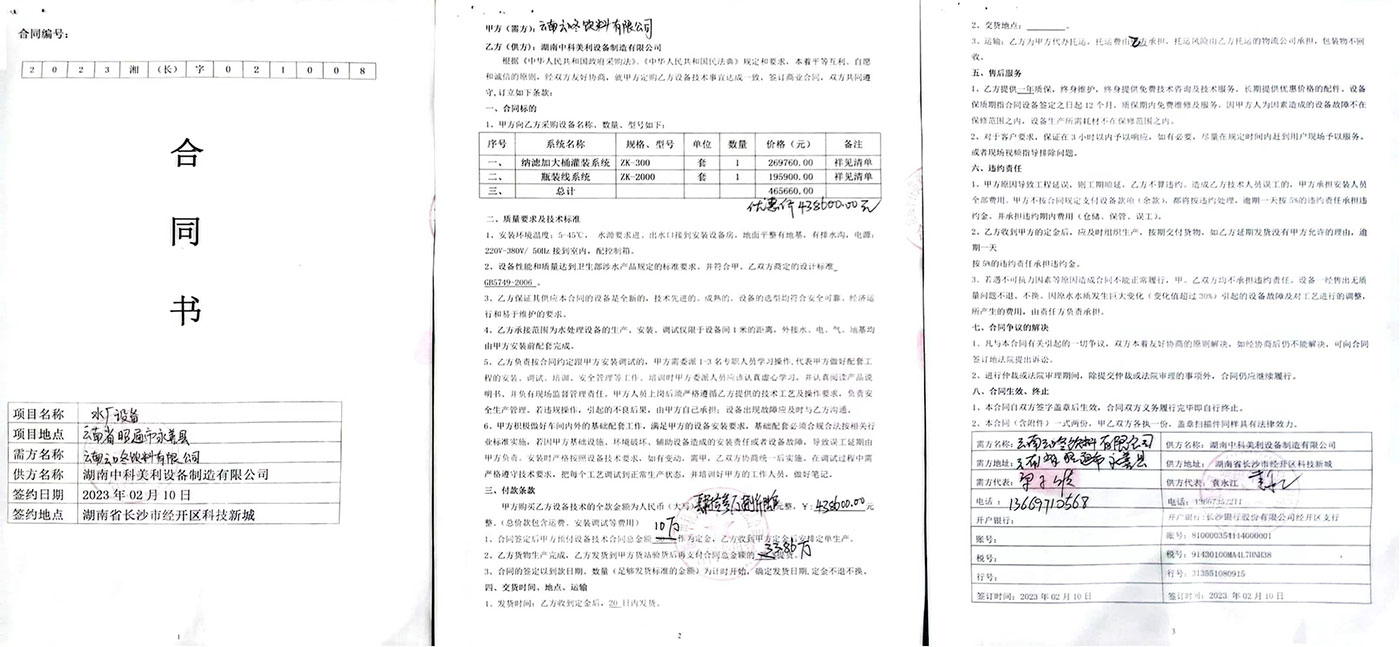 合同编号：
2 0 2 3 湘 （长） 字 0 2 1 0 0 8
合
同
书
项目名称 水厂设备
项目地点 云南省昭通市永善县
需方名称 云南云咚饮料有限公司
供方名称 湖南中科美利设备制造有限公司
签约日期 2023 年 02 月 10 日
签约地点 湖南省长沙市经开区科技新城
1
甲方（需方）：云南云咚饮料有限公司
乙方（供方）：湖南中科美利设备制造有限公司
根据《中华人民共和国政府采购法》、《中华人民共和国民法典》规定和要求，本着平等互利、自愿
和诚信的原则，经双方友好协商，就甲方定购乙方设备技术事宜达成一致，签订商业合同，双方共同遵
守，订立如下条款：
一、合同标的
1、甲方向乙方采购设备名称、数量、型号如下：
序号 系统名称 规格、型号 单位 数量 价格（元） 备注
一、 纳滤加大桶灌装系统 ZK-300 套 1 269760.00 祥见清单
二、 瓶装线系统 ZK-2000 套 1 195900.00 祥见清单
三、 总计 465660.00
优惠价438600.00元
二、质量要求及技术标准
1、安装环境温度：5-45℃， 水源要求进、出水口接到安装设备房，地面平整有地基，有排水沟，电源：
220V-380V/ 50Hz 接到室内，配控制箱。
2、设备性能和质量达到卫生部涉水产品规定的标准要求，并符合甲、乙双方商定的设计标准
GB5749-2006 。
3、乙方保证其供应本合同的设备是全新的，技术先进的、成熟的，设备的选型均符合安全可靠、经济运
行和易于维护的要求。
4、乙方承接范围为水处理设备的生产、安装、调试仅限于设备间 1 米的距离，外接水、电、气、地基均
由甲方安装前配套完成。
5、乙方负责按合同约定跟甲方安装调试的，甲方需委派 1-3 名专职人员学习操作，代表甲方做好配套工
程的安装、调试、培训、安全管理等工作。培训时甲方委派人员应该认真虚心学习，并认真阅读产品说
明书，并负有现场监督管理责任。甲方人员上岗后须严格遵循乙方提供的技术工艺及操作要求，负责安
全生产管理。若违规操作，引起的不良后果，由甲方自己承担；设备出现故障应及时与乙方沟通。
6、甲方积极做好车间内外的基础配套工作，满足甲方的设备安装要求，基础配套必须合规合法按相关行
业标准实施，若因甲方基础设施、环境破坏、辅助设备造成的安装责任或者设备故障，导致误工延期由
甲方负责。安装时严格按照设备技术要求，如有变动，需甲、乙双方协商统一后实施。在调试过程中需
严格遵守技术要求，把每个工艺调试到正常生产状态，并培训好甲方的工作人员，做好笔记。
三、付款条款
甲方购买乙方设备技术的全款金额为人民币（大写） 元整，￥：438600.00 元
整。（总价款包含运费、安装调试等费用）
1、合同签定后甲方预付设备技术合同总金额 10万 作为定金，乙方收到甲方定金后安排定单生产。
2、乙方货物生产完成，乙方发货到甲方货站验货后再支付合同总金额的 33.86万 提货。
3、合同的签定以到款日期、数量（足够发货标准的金额）为计时开始，确定发货日期，定金不退不换。
四、交货时间、地点、运输
1、发货时间：乙方收到定金后，20 日内发货。
2
2、交货地点： 。
3、运输：乙方为甲方代办托运，托运费由乙方承担，托运风险由乙方托运的物流公司承担，包装物不回
收。
五、售后服务
1、乙方提供一年质保，终身维护，终身提供免费技术咨询及技术服务。长期提供优惠价格的配件。设备
保质期指合同设备签定之日起 12 个月。质保期内免费维修及服务，因甲方人为因素造成的设备故障不在
保修范围之内，设备生产所需耗材不在保修范围之内。
2、对于客户要求，保证在 3 小时以内予以响应，如有必要，尽量在规定时间内赶到用户现场予以服务。
或者现场视频指导排除问题。
六、违约责任
1、甲方原因导致工程延误，则工期顺延，乙方不算违约。造成乙方技术人员误工的，甲方承担安装人员
全部费用。甲方不按合同规定支付设备款项（余款），都将按违约处理，逾期一天按 5%的违约责任承担违
约金，并承担违约期内费用（仓储、保管、误工）。
2、乙方收到甲方的定金后，应及时组织生产，按期交付货物，如乙方延期发货没有甲方允许的理由，逾
期一天
按 5%的违约责任承担违约金。
3、若遇不可抗力因素等原因造成合同不能正常履行，甲、乙双方均不承担违约责任。设备一经售出无质
量问题不退、不换。因原水水质发生巨大变化（变化值超过 30%）引起的设备故障及对工艺进行的调整，
所产生的费用，由责任方负责承担。
七、合同争议的解决
1、凡与本合同有关引起的一切争议，双方本着友好协商的原则解决，如经协商后仍不能解决，可向合同
签订地法院提出诉讼。
2、进行仲裁或法院审理期间，除提交仲裁或法院审理的事项外，合同仍应继续履行。
八、合同生效、终止
1、本合同自双方签字盖章后生效，合同双方义务履行完毕即自行终止。
2、本合同（含附件）一式两份，甲乙双方各执一份，盖章扫描件同样具有法律效力。
需方名称：云南云咚饮料有限公司 供方名称：湖南中科美利设备制造有限公司
需方地址：云南省昭通市永善县 供方地址： 湖南省长沙市经开区科技新城
需方代表： 供方代表：袁永江
电话：13669710568 电话：
开户银行： 开户银行：长沙银行股份有限公司经开区支行
账号： 账号：810000354114600001
税号： 税号：91430100MA4L7HNH38
行号： 行号：313551080915
签订时间：2023 年 02 月 10 日 签订时间：2023 年 02 月 10 日
3